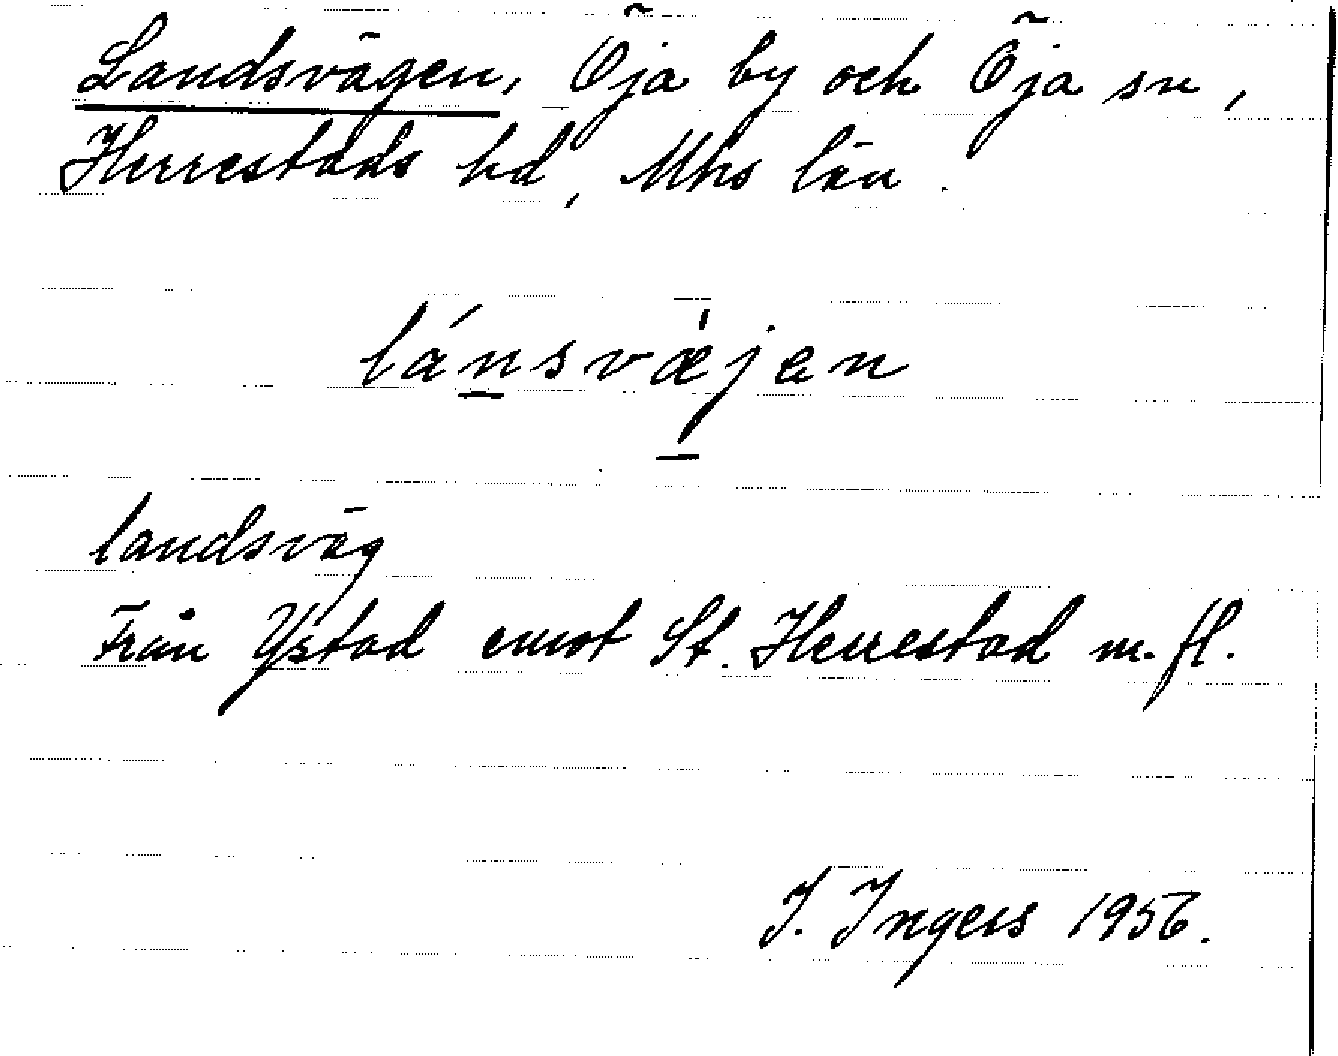 Landsvägen, Öja by och Öja sn,
Herrestads hd, Mhs län.
lánsvæ̀jen
landsväg
Från Ystad emot St. Herrestad m. fl.
I. Ingers 1956.